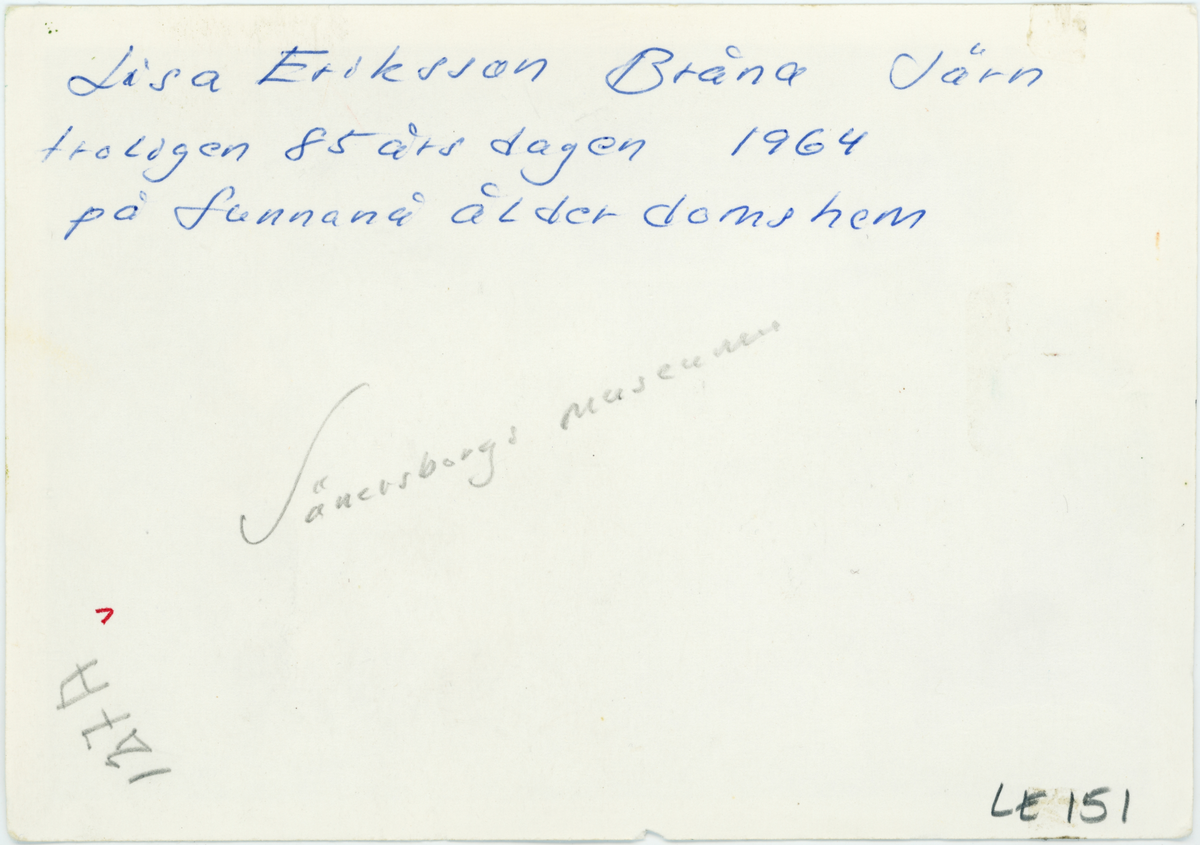 Lisa Eriksson Bråna Järn
troligen 85 års dagen 1964
på Sunnanå ålderdomshem
Vänersborgs museum
127A
LE 151